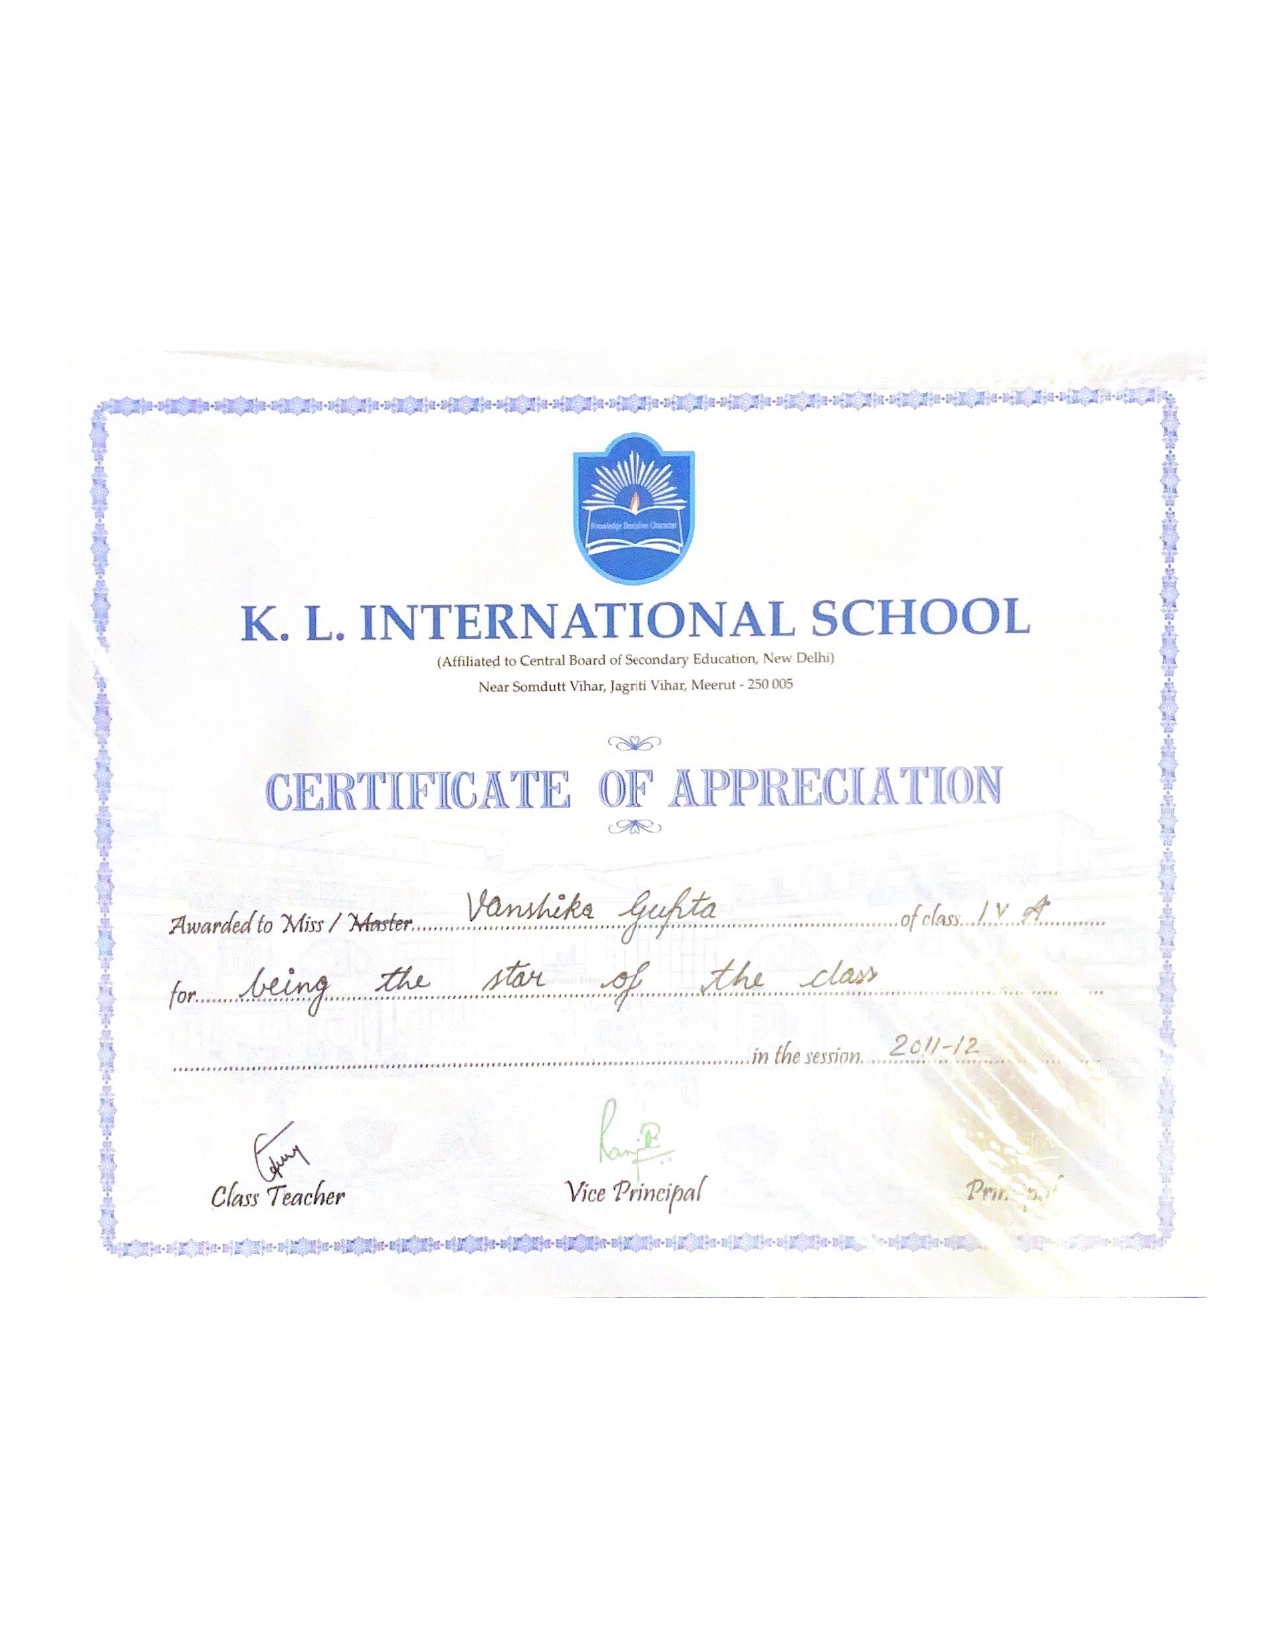 Knowledge Discipline Character
K. L. INTERNATIONAL SCHOOL
(Affiliated to Central Board of Secondary Education, New Delhi)
Near Somdutt Vihar, Jagriti Vihar, Meerut - 250 005
CERTIFICATE OF APPRECIATION
Awarded to Miss / Master Vanshika Gupta of class IV A
for being the star of the class
in the session 2011-12
Class Teacher Vice Principal Principal